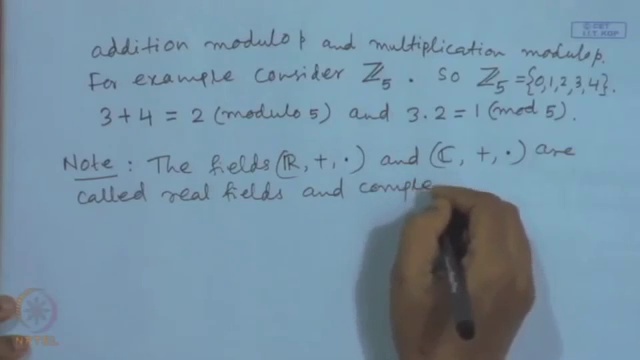 addition modulo p and multiplication modulo p.
For example consider ℤ₅. So ℤ₅ = {0,1,2,3,4}.
3+4 = 2 (modulo 5) and 3.2 = 1 (mod 5).
Note: The fields (ℝ, +, ·) and (ℂ, +, ·) are
called real fields and comple
NPTEL